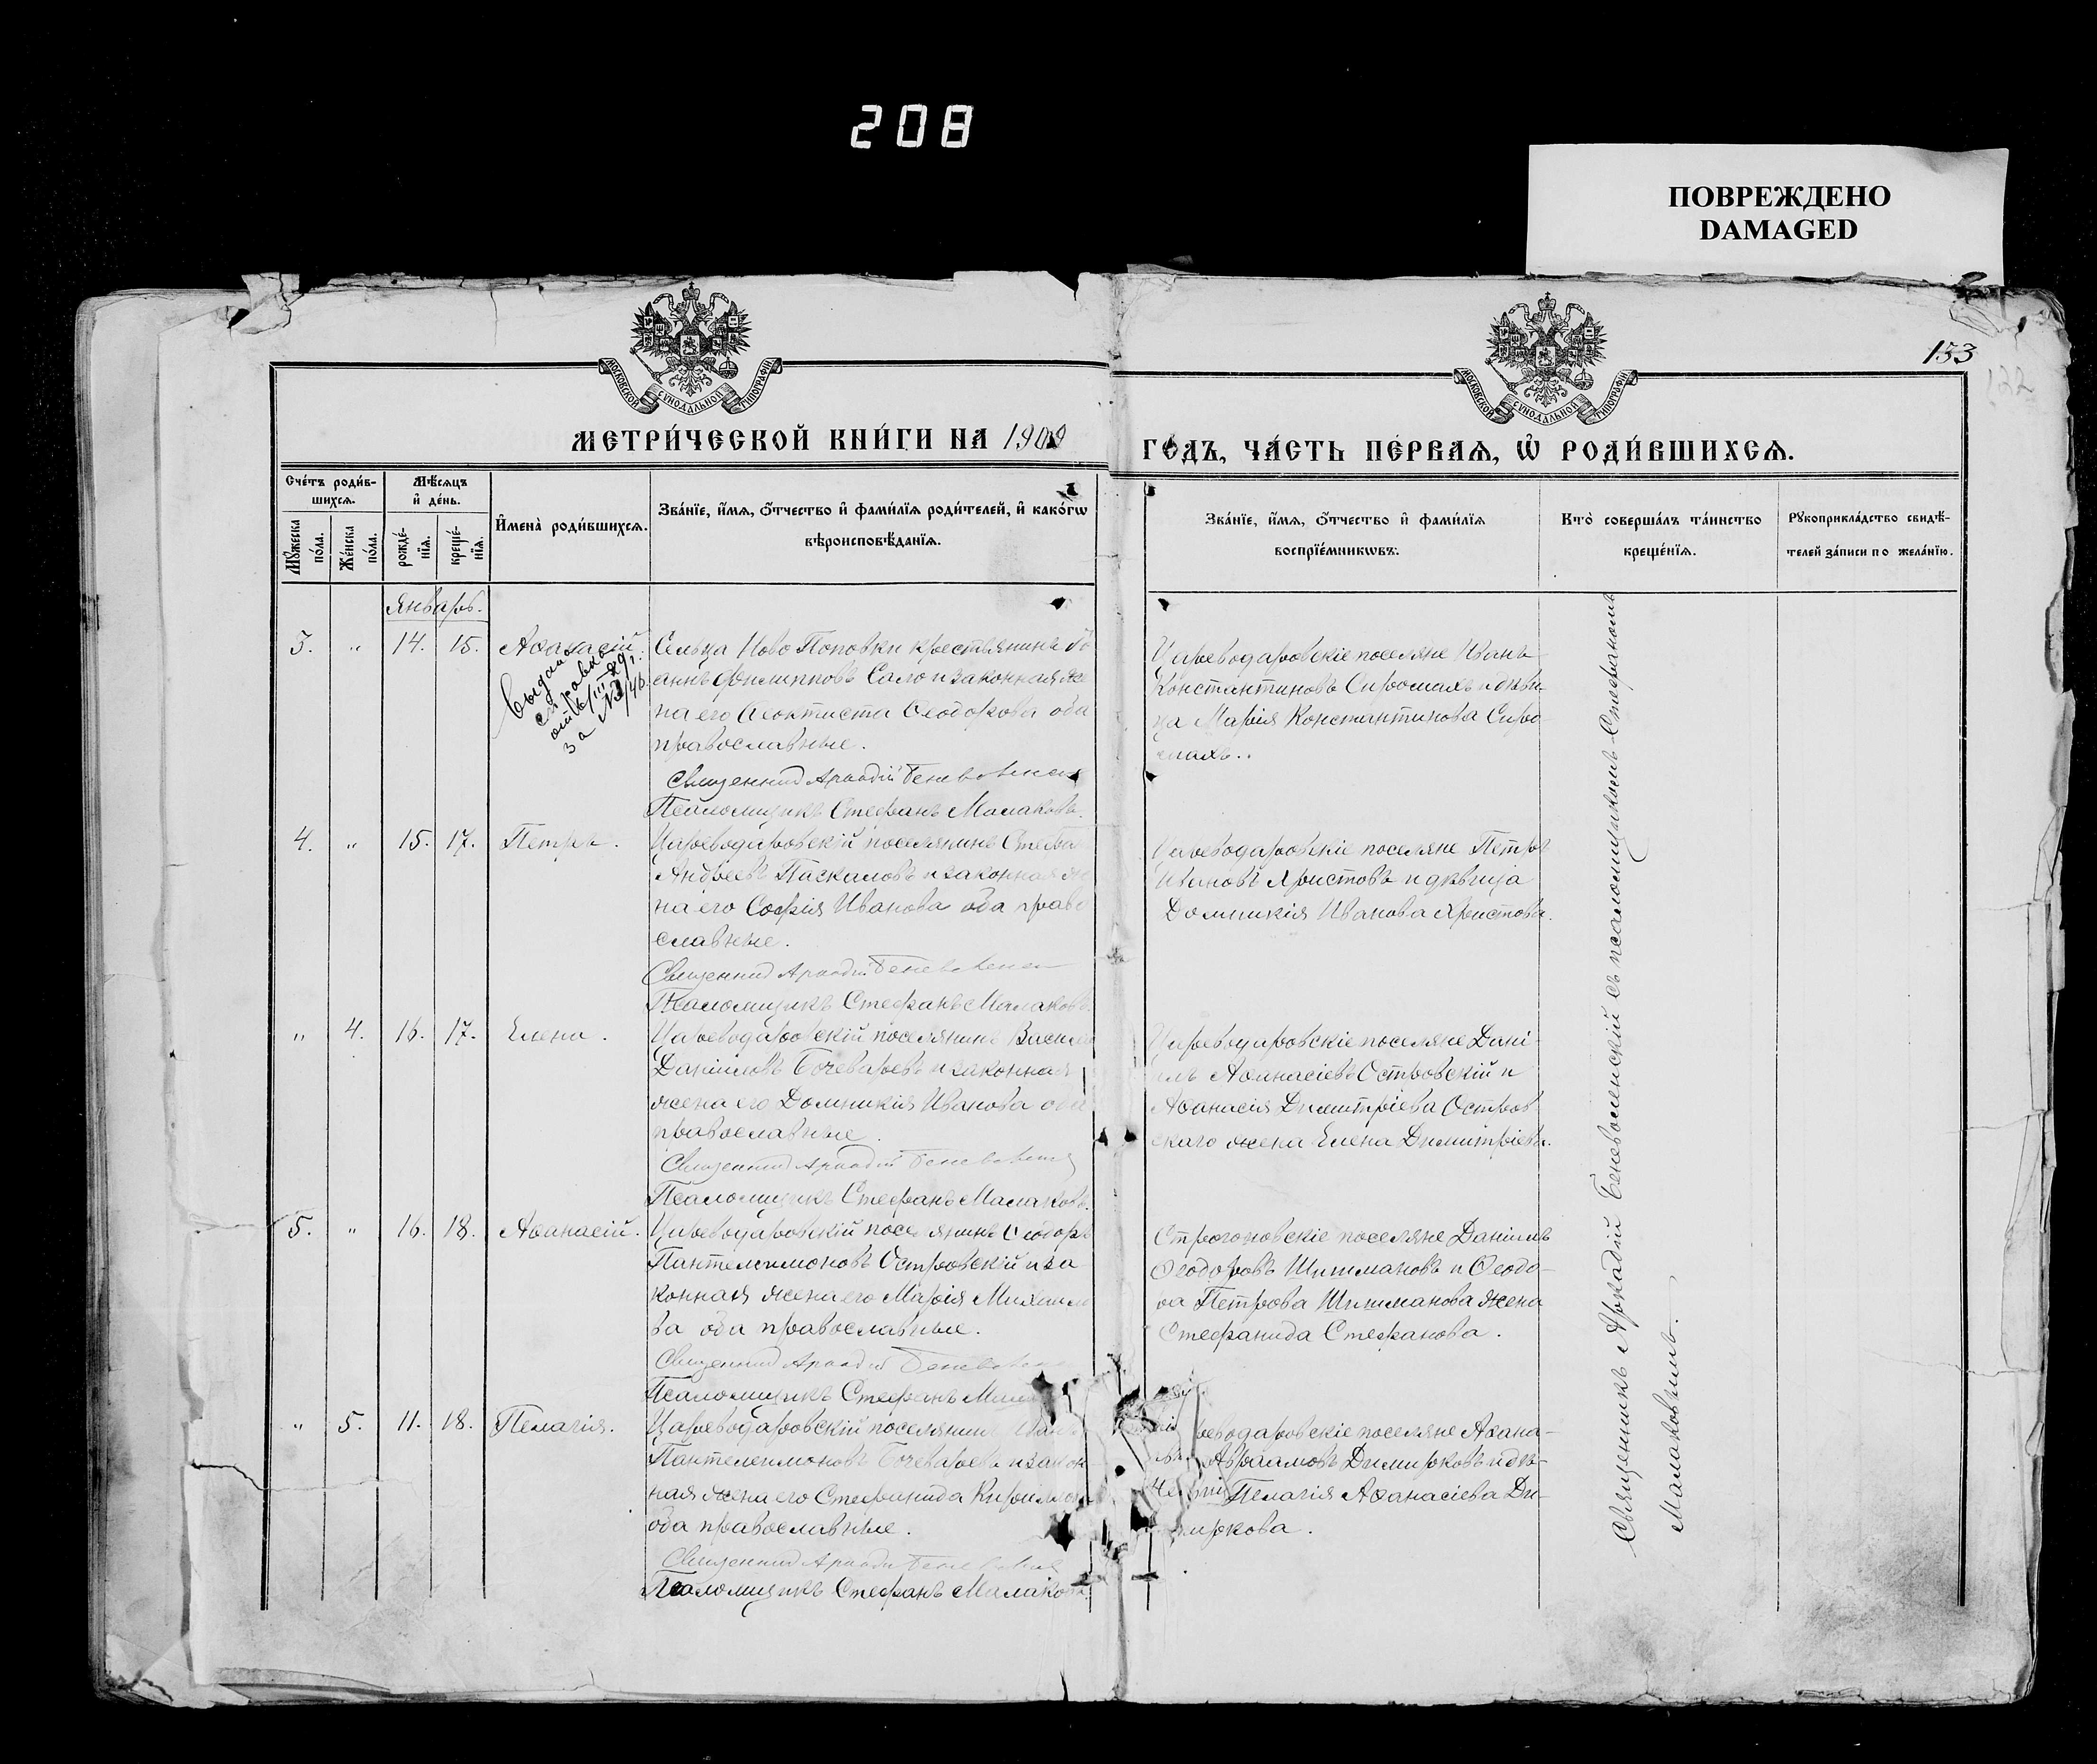 208
ПОВРЕЖДЕНО
DAMAGED
МОСКОВСКОЙ СѴНОДАЛЬНОЙ ТИПОГРАФІИ
МОСКОВСКОЙ СѴНОДАЛЬНОЙ ТИПОГРАФІИ
153
122
МЕТРИ́ЧЕСКОЙ КНИ́ГИ НА 1909
ГО́ДЪ, ЧА́СТЬ ПЕ́РВАѦ, Ѡ҆ РОДИ́ВШИХСѦ.
Сче́тъ роди́в-
шихсѧ.
Мꙋ́жеска по́ла.
Же́нска по́ла.
Мѣ́сѧцъ
и҆ де́нь.
рожде́-
нїѧ.
креще́-
нїѧ.
И҆мена̀ роди́вшихсѧ.
Зва́нїе, и҆́мѧ, ѻ҆́тчество и҆ фами́лїѧ роди́телей, и҆ како́гѡ
вѣроисповѣ́данїѧ.
Зва́нїе, и҆́мѧ, ѻ҆́тчество и҆ фами́лїѧ
воспрїе́мникѡвъ.
Кто̀ соверша́лъ та́инство
креще́нїѧ.
Рꙋкоприкла́дство свидѣ́-
телей за́писи по жела́нїю.
Январь.
3. " 14. 15. Аѳанасій.
Выдана
за №
Сельца Ново Поповки крестьянинъ Іо
аннъ Филипповъ Сало и законная же
на его Ѳеоктиста Ѳеодорова оба
православные.
Священникъ Аркадій Беневоленск
Псаломщикъ Стефанъ Малаковъ.
Цареводаровскіе поселяне Иванъ
Константиновъ Сиромахъ и дѣви-
ца Марія Константинова Сиро-
махъ..
4. " 15. 17. Петръ.
Цареводаровскій поселянинъ Стефа
Андреевъ Паскаловъ и законная же
на его Софія Иванова оба право
славные.
Священникъ Аркадій Беневоленск
Псаломщикъ Стефанъ Малаковъ.
Цареводаровскіе поселяне Петръ
Ивановъ Христовъ и дѣвица
Домникія Иванова Христова.
" 4. 16. 17. Елена.
Цареводаровскій поселянинъ Васил
Даніиловъ Бочеваровъ и законная
жена его Домникія Иванова оба
православные.
Священникъ Аркадій Беневоленск
Псаломщикъ Стефанъ Малаковъ.
Цареводаровскіе поселяне Дані-
илъ Аѳанасіевъ Островскій и
Аѳанасія Димитріева Остров
скаго жена Елена Димитріева.
5. " 16. 18. Аѳанасій.
Цареводаровскій поселянинъ Ѳеодоръ
Пантелеимоновъ Островскій и за
конная жена его Марія Михаило
ва оба православные.
Священникъ Аркадій Беневоленск
Псаломщикъ Стефанъ Мала
Строгоновскіе поселяне Даніилъ
Ѳеодоровъ Шишмановъ и Ѳеодо-
ра Петрова Шишманова жена
Стефанида Стефанова.
" 5. 11. 18. Пелагія.
Цареводаровскій поселянинъ Иван
Пантелеимоновъ Бочеваровъ и закон-
ная жена его Стефанида Кириллова
оба православные.
Священникъ Аркадій Беневоленск
Псаломщикъ Стефанъ Малаковъ.
реводаровскіе поселяне Аѳана-
Авраамовъ Димирковъ и дѣ-
Пелагія Аѳанасіева Ди-
миркова.
Священникъ Аркадій Беневоленскій съ псаломщикомъ Стефаномъ
Малаковымъ.